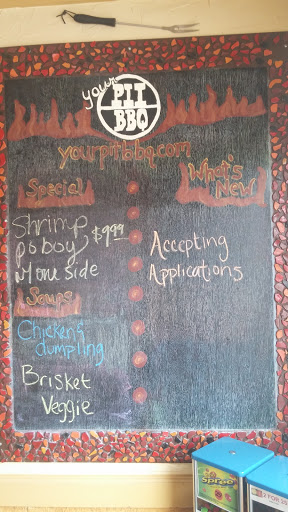 your
PIT
BBQ
yourpitbbq.com
Special
Shrimp
po boy $9.99
w/ one side
Soups
Chicken &
dumpling
Brisket
Veggie
What's
New
Accepting
Applications
Spree